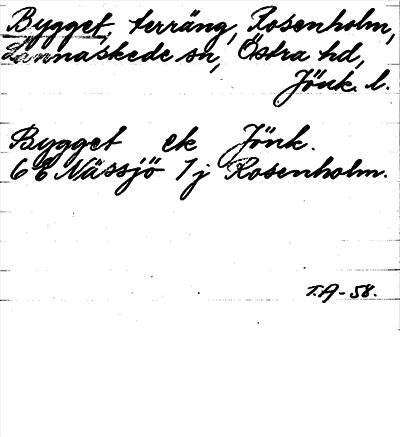 Bygget, terräng, Rosenholm,
Lannaskede sn, Östra hd,
Jönk. l.
Bygget ek Jönk.
6 E Nässjö 1 j Rosenholm.
T.A-58.